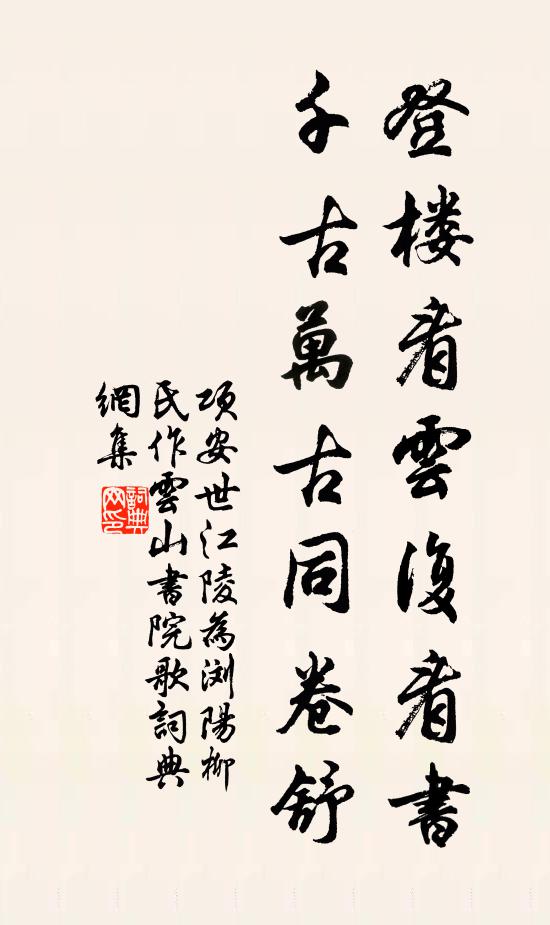 登楼看雲復看書
千古萬古同卷舒
項安世江陵為浏陽柳
民作雲山書院歌詞典
網集
詞典網印